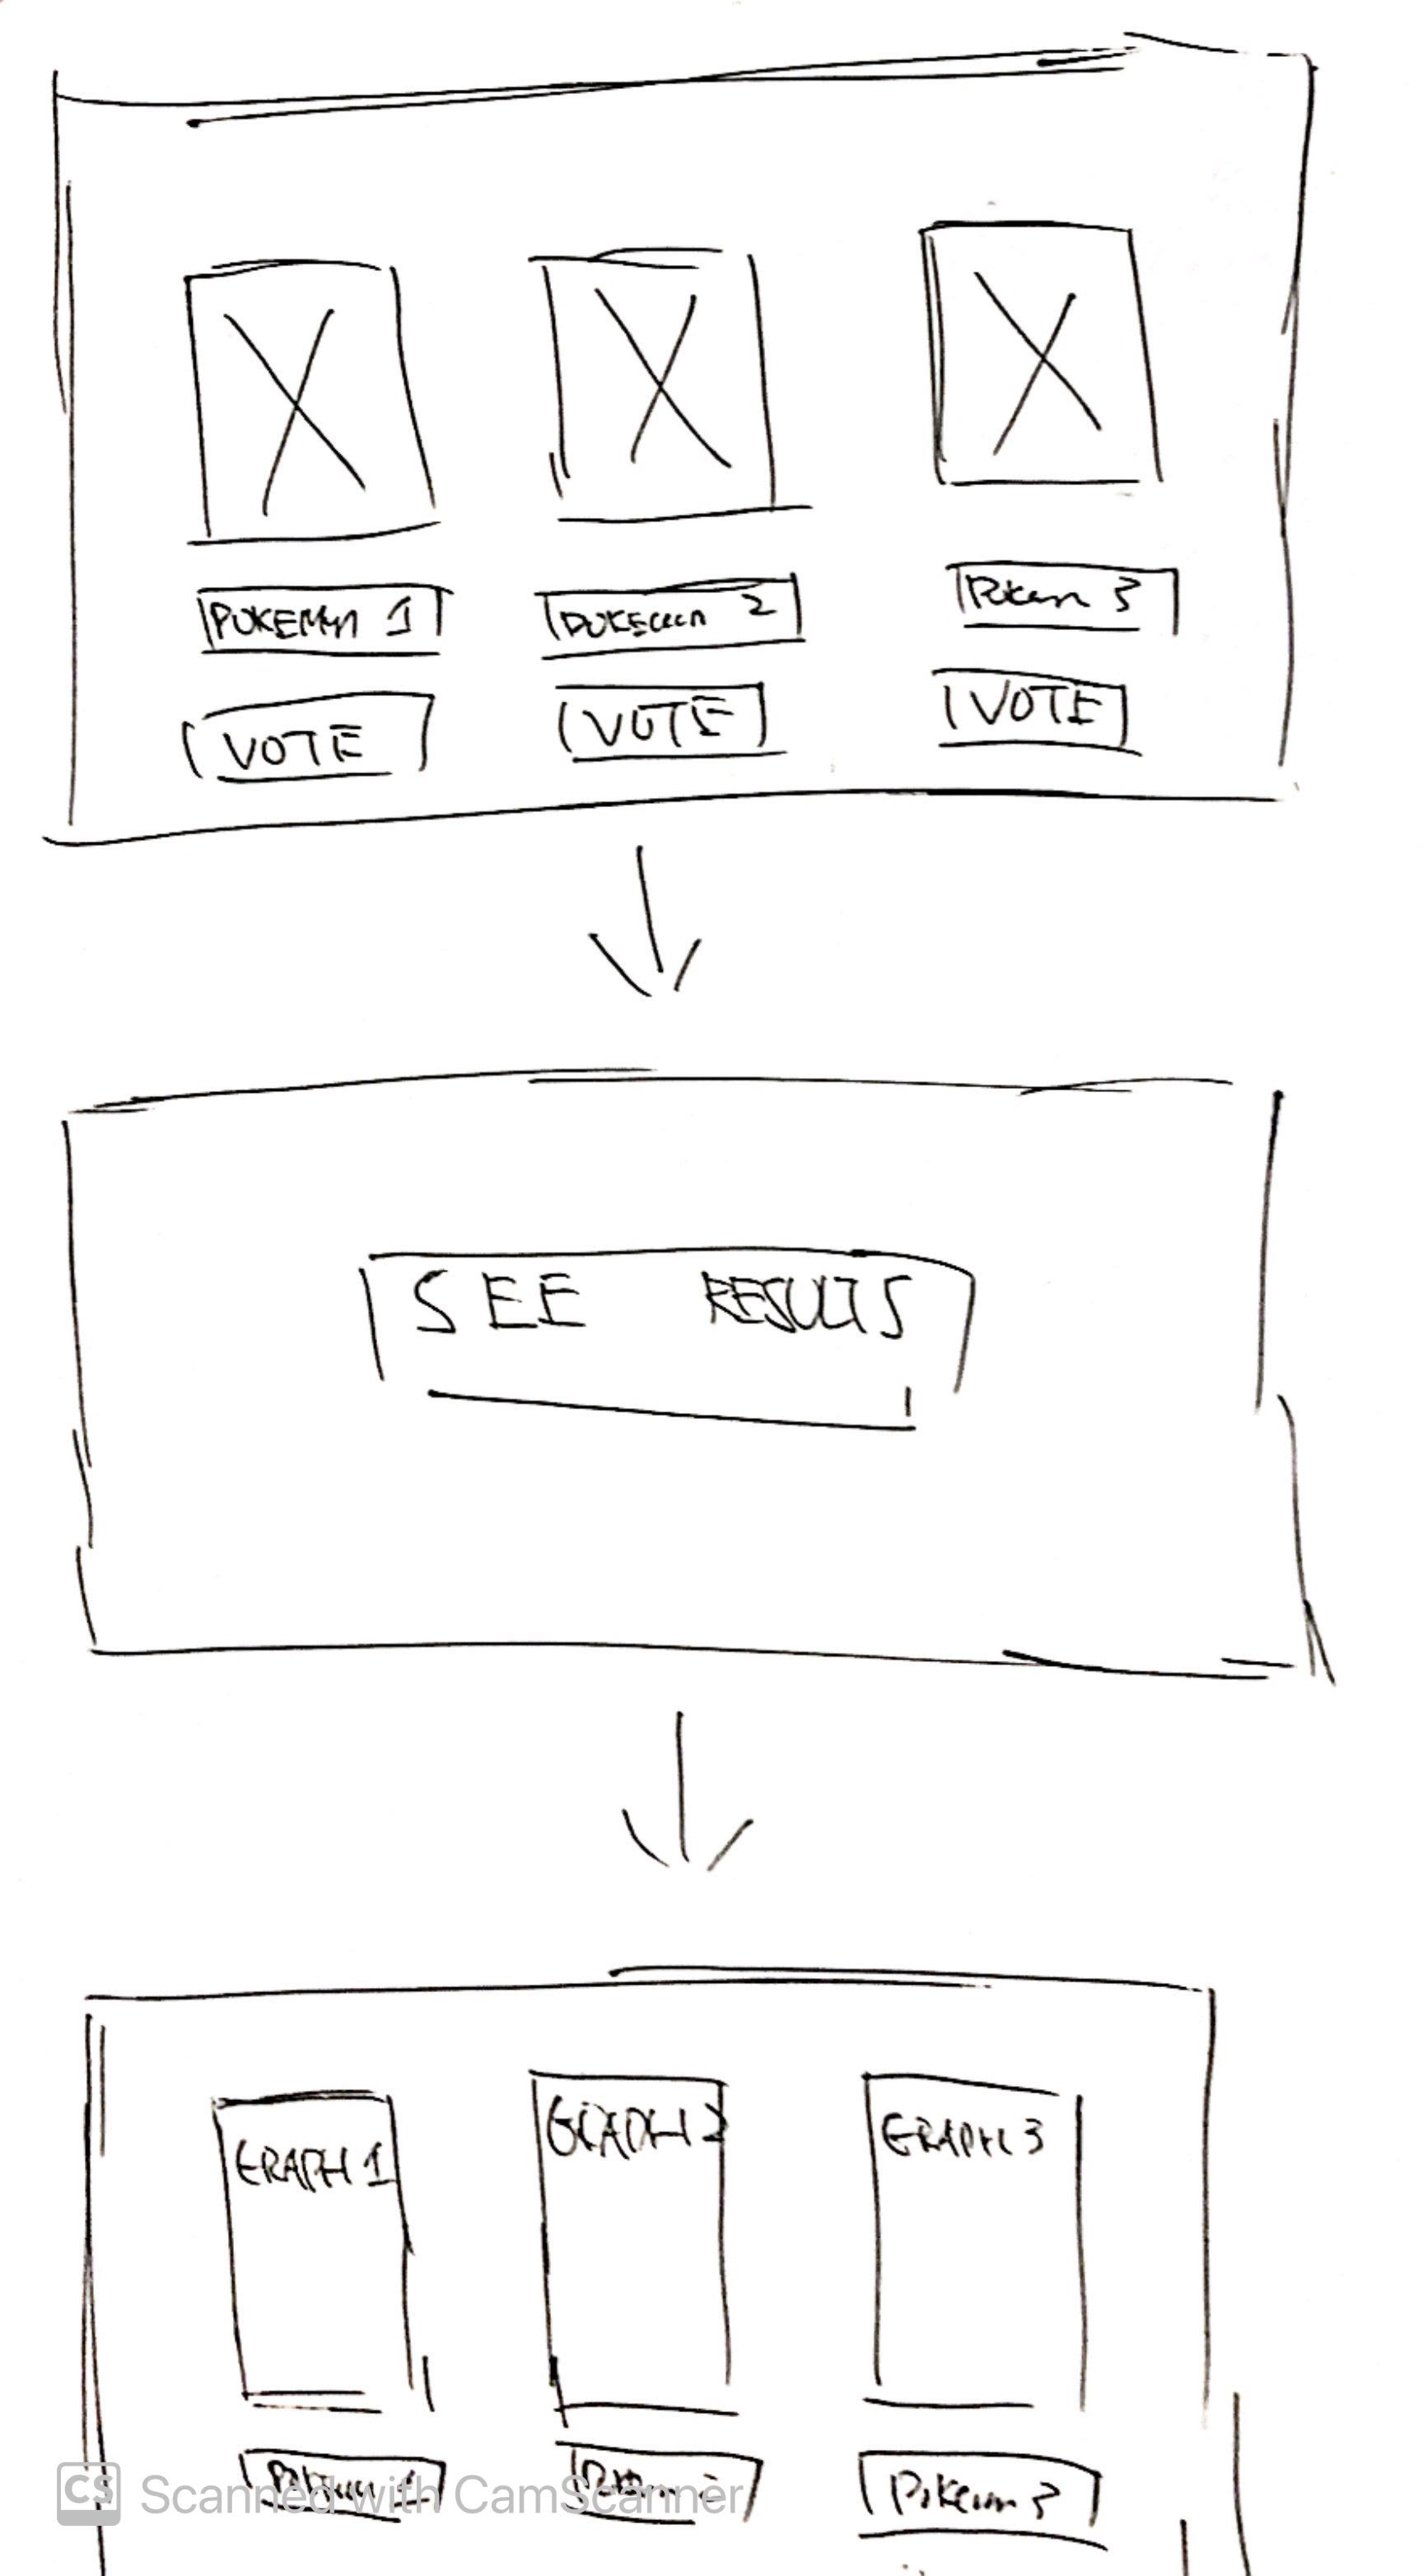 POKEMON 1 POKEMON 2 Pokemon 3
VOTE VOTE VOTE
SEE RESULTS
GRAPH 1 GRAPH 2 GRAPH 3
Pokemon 1 Pokemon 2 Pokemon 3
CS Scanned with CamScanner